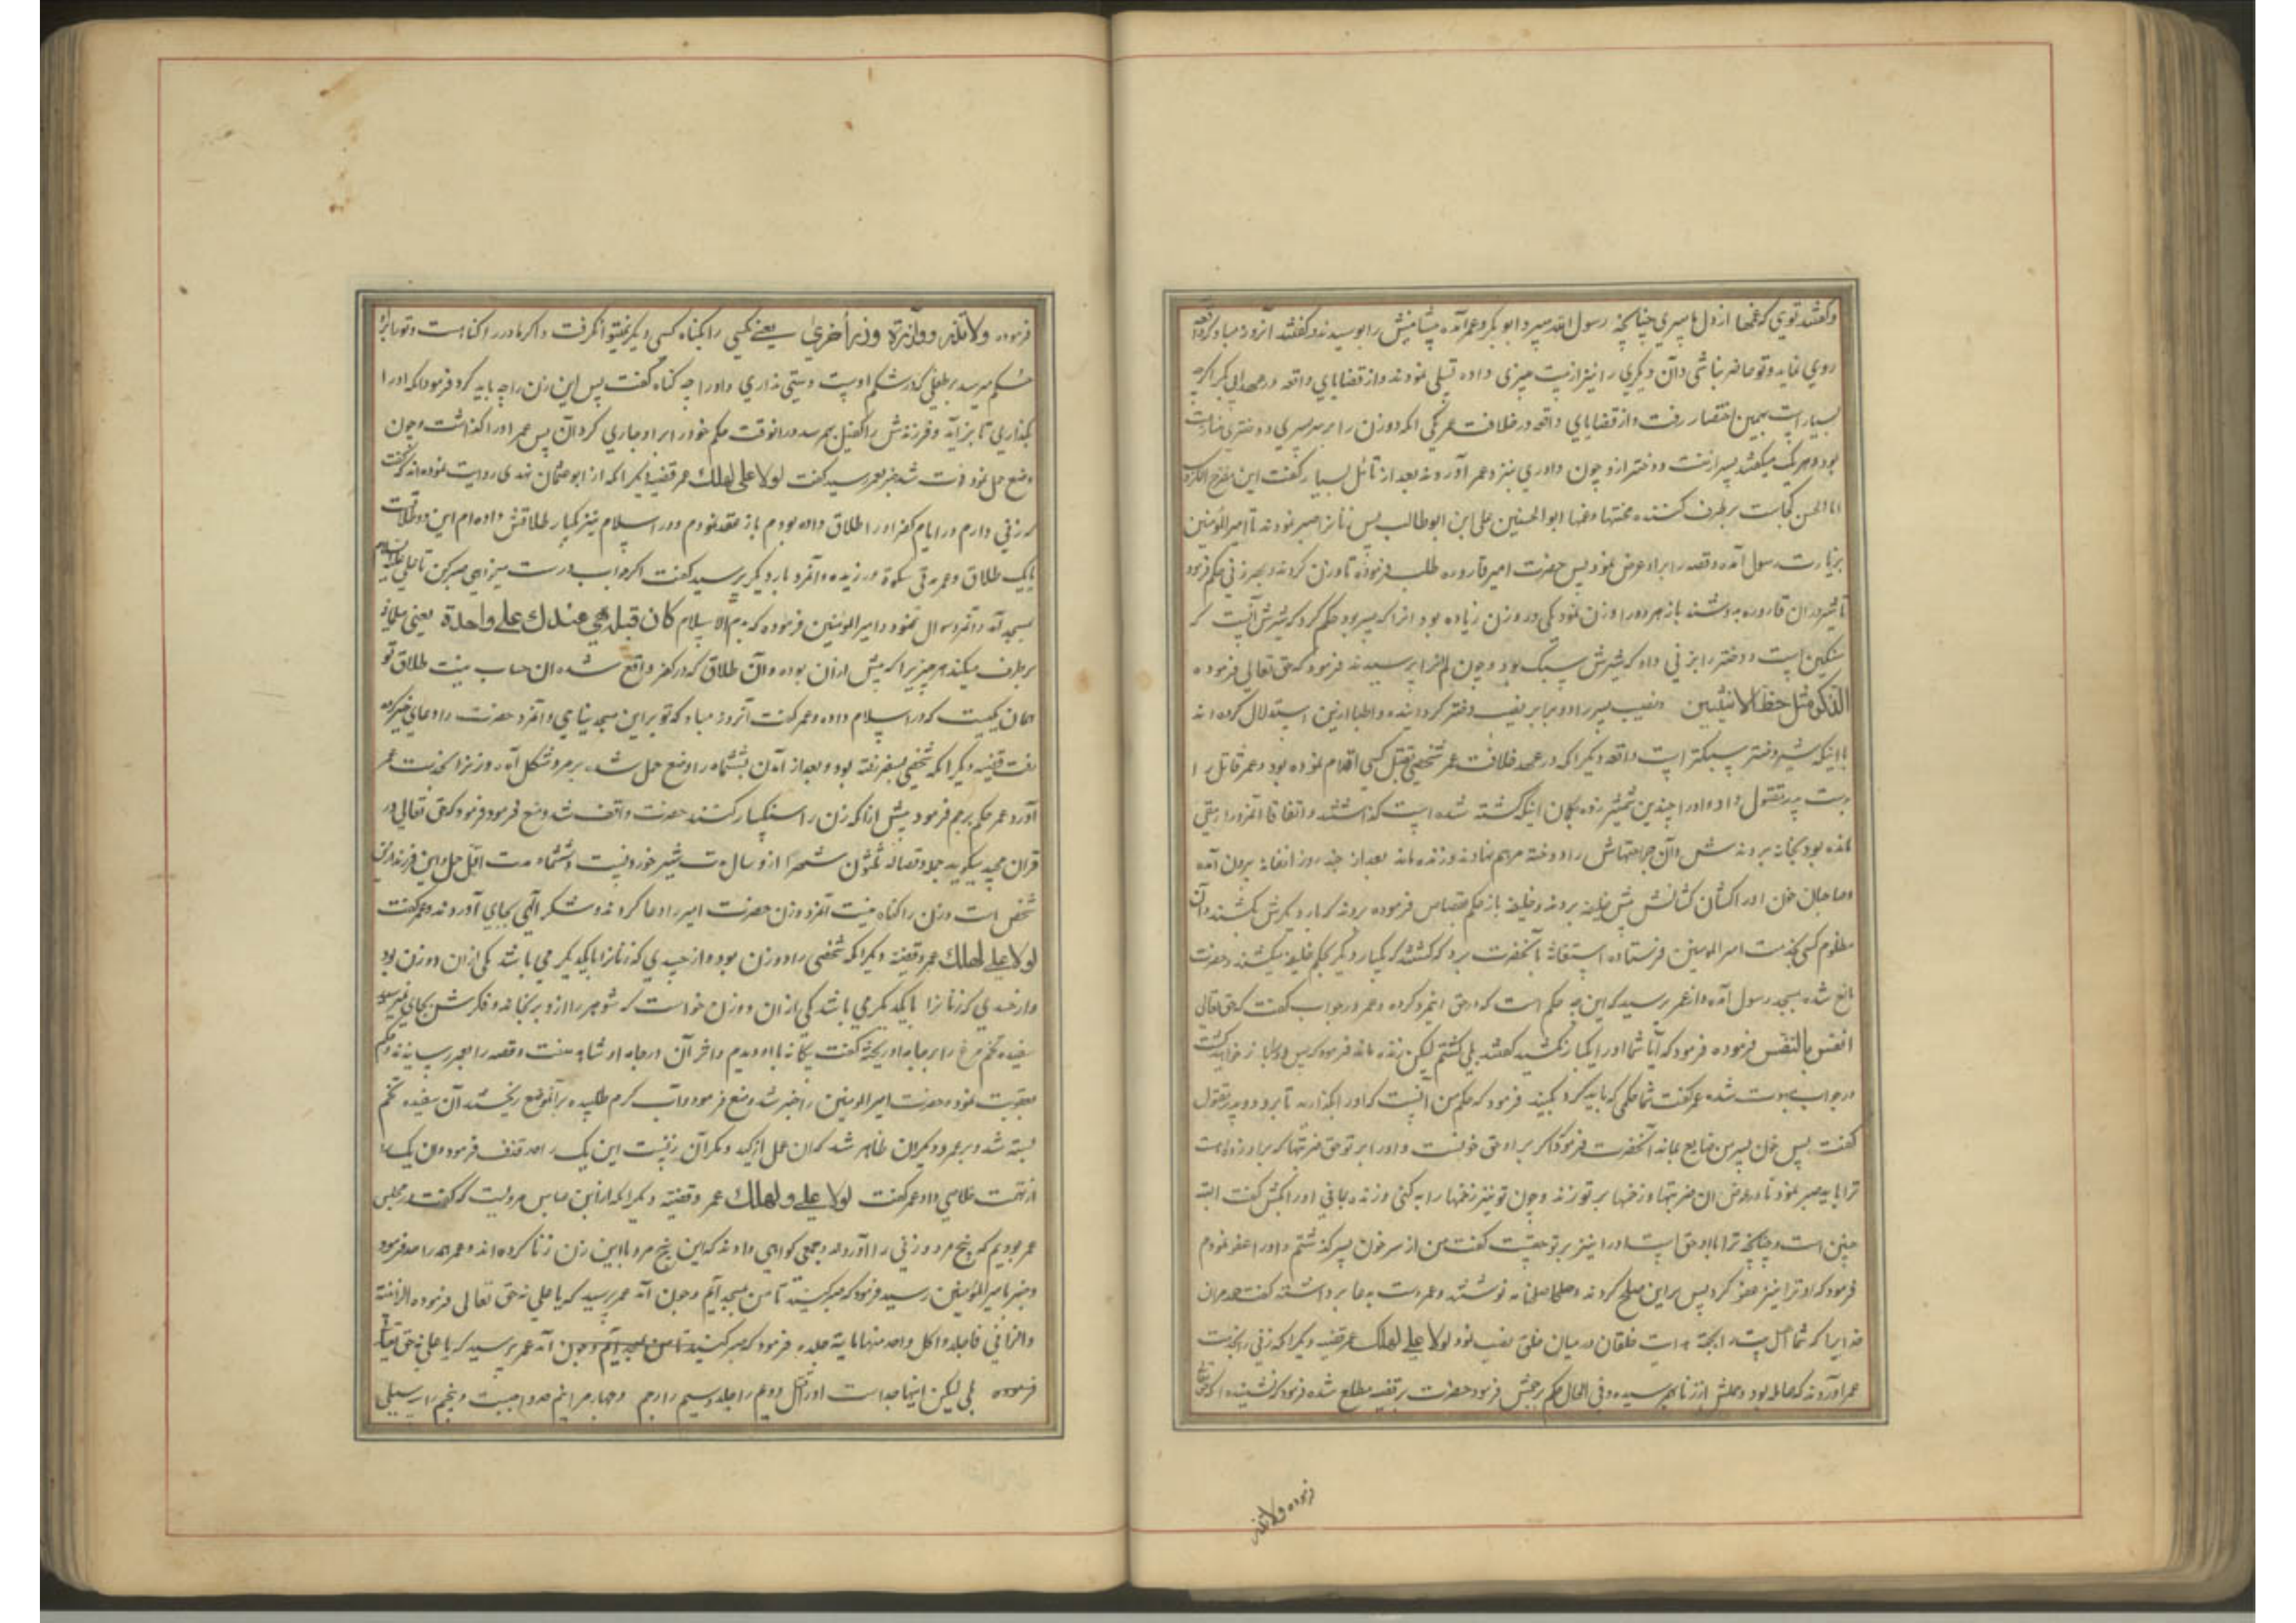 و گفتند تویی که غمها از دل ما میبری چنانچه رسول الله میبرد ابو بکر و عمر آمده پیشانیش را بوسیدند و گفتند آنروز مباد که واقعه
روی نماید و تو حاضر نباشی و آن دیگری را نیز از دیت چیزی داده تسلی نمودند و از قضایای واقعه در عهد ابی بکر اگرچه
بسیار است بهمین اختصار رفت و از قضایای واقعه در خلافت عمر یکی آنکه دو زن را بر سر پسری و دختری منازعت
بود و هر یک میگفتند پسر از منست و دختر ازو چون داوری بنزد عمر آوردند بعد از تأمل بسیار گفت این مفرج الکرب
ابا الحسن کجاست برطرف کننده محنتها و غمها ابو الحسنین علی ابن ابو طالب پس زنانرا صبر فرمودند تا امیر المؤمنین
بزیارت رسول آمده و قصه را برو عرض نمود پس حضرت امیر قاروره طلب فرموده تا وزن کردند و بهر زنی حکم فرمود
تا شیر در آن قاروره بدوشند باز هر دو را وزن نمود یکی در وزن زیاده بود آنرا که پسر بود حکم کرد که شیرش آنست که
سنگین است و دختر را بزنی داد که شیرش سبک بود و چون لم آنرا پرسیدند فرمود که حق تعالی فرموده
للذکر مثل حظ الانثیین و نصیب پسر را دو برابر نصیب دختر گردانیده و اطبا ازین استدلال کرده اند
با اینکه شیر دختر سبکتر است واقعه دیگر آنکه در عهد خلافت عمر شخصی بقتل کسی اقدام نموده بود و عمر قاتل را
بدست پدر مقتول داد و او را چندین شمشیر زده بگمان اینکه کشته شده است گذاشتند و اتفاقا آنمرد را رمقی
مانده بود بخانه بردندش و آن جراحتهاش را دوخته مرهم نهادند و زنده ماند بعد از چند روز از خانه برون آمده
و صاحبان خون او را کشان کشانش پیش خلیفه بردند و خلیفه باز حکم قصاص فرموده بردند که بار دیگرش بکشند و آن
مظلوم کسی بخدمت امیر المومنین فرستاده استغاثه بآنحضرت برد که کشتند که یکبار دیگر بحکم خلیفه میکشند و حضرت
مانع شده بمسجد رسول آمده و از عمر پرسید که این چه حکم است که در حق اینمرد کرده و عمر در جواب گفت که حق تعالی
النفس بالنفس فرموده فرمود که آیا شما او را یکبار نکشتید گفتند بلی کشتیم لیکن زنده ماند فرمود که پس دوبار خواهید کشت
در جواب مبهوت شده عمر گفت شما حکمی که باید کرد بکنید فرمود که حکم من آنست که او را بگذارید تا برود و پدر مقتول
گفت پس خون پسر من ضایع بماند آنحضرت فرمود که اگر بر او حق خونست و او را بر تو حق ضربتها که برو زده است
ترا باید صبر نمود تا در عوض آن ضربتها و زخمها بر تو زند و چون تو نیز زخمها را به کنی و زنده بمانی او را بکش گفت البته
چنین است و چنانچه ترا با او حق است او را نیز بر تو حقیست گفت من از سر خون پسر گذشتم و او را عفو نمودم
فرمود که او ترا نیز عفو کرد پس بر این صلح کردند و صلحنامه نوشتند و عمر دست بدعا برداشته گفت حمد مر آن
خدایرا که شما اهل بیت را بجهة هدایت خلقان در میان خلق نصب نمود لولا علی لهلک عمر قضیه دیگر آنکه زنی را بخدمت
عمر آوردند که حامله بود و حملش از زنا بهم رسیده و فی الحال حکم برجمش فرمود حضرت بر قضیه مطلع شده فرمود که نشنیده اید که حق تعالی
فرموده ولا تزر
فرموده ولا تزر وازرة وزر أخری یعنی کسی را بگناه کسی دیگر نمیتوان گرفت و اگر مادر را گناه است و تو را برو
حکم میرسد بر طفلی که در شکم اوست دستی نداری و او را چه گناه گفت پس این زن را چه باید کرد فرمود که او را
بگذاری تا بزاید و فرزندش را کفیل بهم رسد در انوقت حکم خود را بر او جاری کردن پس عمر او را گذاشت و چون
وضع حمل نمود فوت شد خبر بعمر رسید گفت لولا علی لهلک عمر قضیه دیگر آنکه از ابو عثمان نهدی روایت نموده اند که گفت
که زنی دارم در ایام کفر او را طلاق داده بودم باز عقد نمودم و در اسلام نیز یکبار طلاقش داده ام این دو طلاقست
یا یک طلاق و عمر مدتی سکوت ورزیده و آنمرد بار دیگر پرسید گفت اگر جواب درست میخواهی صبر کن تا علی علیه السلام
بمسجد آید و آنمرد سوال نمود و امیر المؤمنین فرموده که هدم الاسلام ما کان قبله هی عندک علی واحدة یعنی مسلمانی
برطرف میکند هر چیزیرا که پیش ازان بوده و آن طلاق که در کفر واقع شده ان حساب نیست طلاق تو
همان یکیست که در اسلام داده و عمر گفت آنروز مباد که تو بر این مسجد نیایی و آنمرد حضرت را دعای خیر کرده
رفت قضیه دیگر آنکه شخصی بسفر رفته بود و بعد از آمدن بششماه زن را وضع حمل شد بر مرد مشکل آمد و زنرا بخدمت عمر
آورد و عمر حکم برجم فرمود پیش از آنکه زن را سنگسار کنند حضرت واقف شد و منع فرمود و فرمود که حق تعالی در
قران مجید میگوید حمله و فصاله ثلثون شهرا از دو سال مدت شیر خوردنست و ششماه مدت اقل حمل و این فرزند ازین
شخص است و زن را گناه نیست آنمرد و زن حضرت امیر را دعا کردند و شکر الهی بجای آوردند و عمر گفت
لولا علی لهلک عمر و قضیه دیگر آنکه شخصی را دو زن بود و از حسدی که زنانرا با یکدیگر می باشد یکی از ان دو زن بود
و از حسدی که زنانرا با یکدیگر می باشد یکی از ان دو زن خواست که شوهر را ازو برنجاند و فکرش بجای نمیرسید
سفیده تخم مرغ را بر جامه او ریخته گفت بیگانه با او دیدم و اثر آن در جامه او شاهد منست و قصه را بعمر رسانیدند و حکم
بعقوبت نمود و حضرت امیر المومنین را خبر شد و منع فرمود و آب گرم طلبیده بر آنموضع ریختند آن سفیده تخم
بسته شد و بر عمر و دیگران ظاهر شد که ان عمل از کید و مکر آن زنست این یک را حد قذف فرمود و ان یک را
از تهمت خلاصی داد و عمر گفت لولا علی لهلک عمر و قضیه دیگر آنکه از ابن عباس مرویست که گفت در مجلس
عمر بودیم که پنج مرد و زنی را آوردند و جمعی گواهی دادند که این پنج مرد با این زن زنا کرده اند و عمر همه را حد فرمود
و خبر بامیر المؤمنین رسید فرمود که صبر کنید تا من بمسجد آیم و چون آمد عمر پرسید که یا علی نه حق تعالی فرموده الزانیة
والزانی فاجلدوا کل واحد منهما مایة جلده فرمود که صبر کنید تا من بمسجد آیم و چون آمد عمر پرسید که یا علی نه حق تعالی
فرموده بلی لیکن اینها جداست اول قتل دویم را جلد و سیم را رجم و چهارم را نیم حد واجبست و پنجم را سیلی